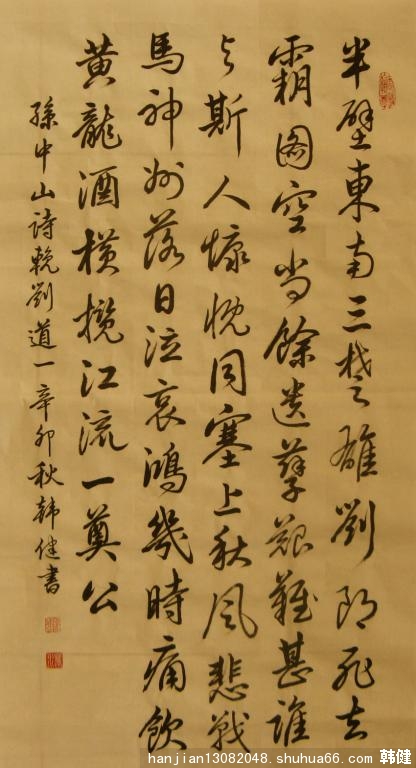 半壁東南三楚雄劉郎死去
霸图空尚餘遗孽艱難甚誰
与斯人慷慨同塞上秋风悲戰
馬神州落日泣哀鴻幾時痛飲
黄龍酒横攬江流一奠公
孫中山詩輓劉道一辛卯秋韩健書
hanjian13082048. shuhua66. com 韩健